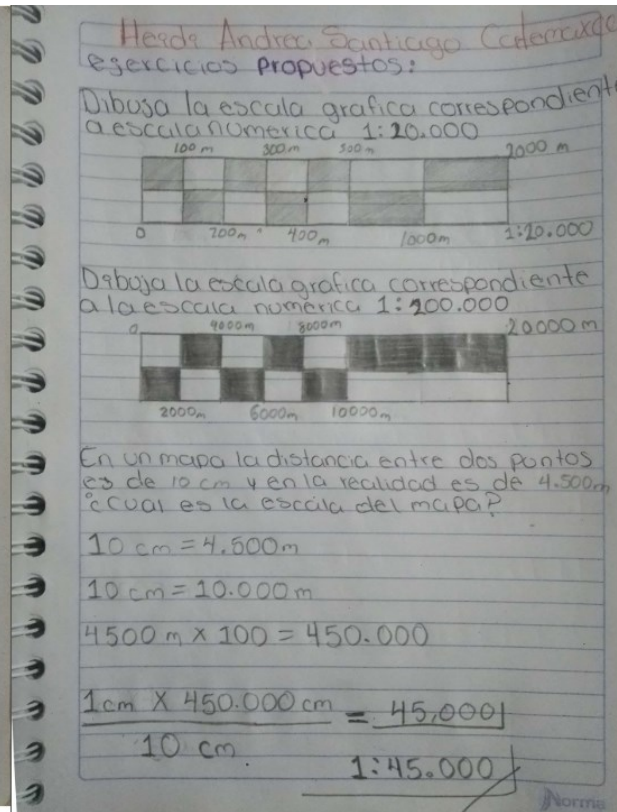 Andrea Santiago
egercicios propuestos:
Dibuja la escala grafica correspondiente
a escala numerica 1:20.000
100m 300m 500m 2000 m
0 200m 400m 1000m 1:20.000
Dibuja la escala grafica correspondiente
a la escala numerica 1:200.000
0 4000m 8000m 20000 m
2000m 6000m 10000m
En un mapa la distancia entre dos puntos
es de 10 cm y en la realidad es de 4.500m
¿cual es la escala del mapa?
10 cm = 4.500m
10 cm = 10.000m
4500 m x 100 = 450.000
1cm X 450.000 cm = 45,000
10 cm
1:45.000
Norma